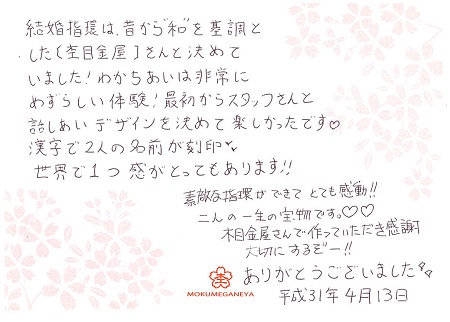 結婚指環は、昔から"和"を基調と
した[杢目金屋]さんと決めて
いました!わかちあいは非常に
めずらしい体験!最初からスタッフさんと
話しあいデザインを決めて楽しかったです♡
漢字で2人の名前が刻印
世界で1つ感がとってもあります!!
素敵な指環ができてとても感動!!
二人の一生の宝物です。♡♡
木目金屋さんで作っていただき感謝
大切にするぞー!!
ありがとうございました
MOKUMEGANEYA
平成31年4月13日